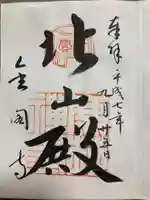 奉拝 平成七年
九月廿五日
北山殿
金閣寺